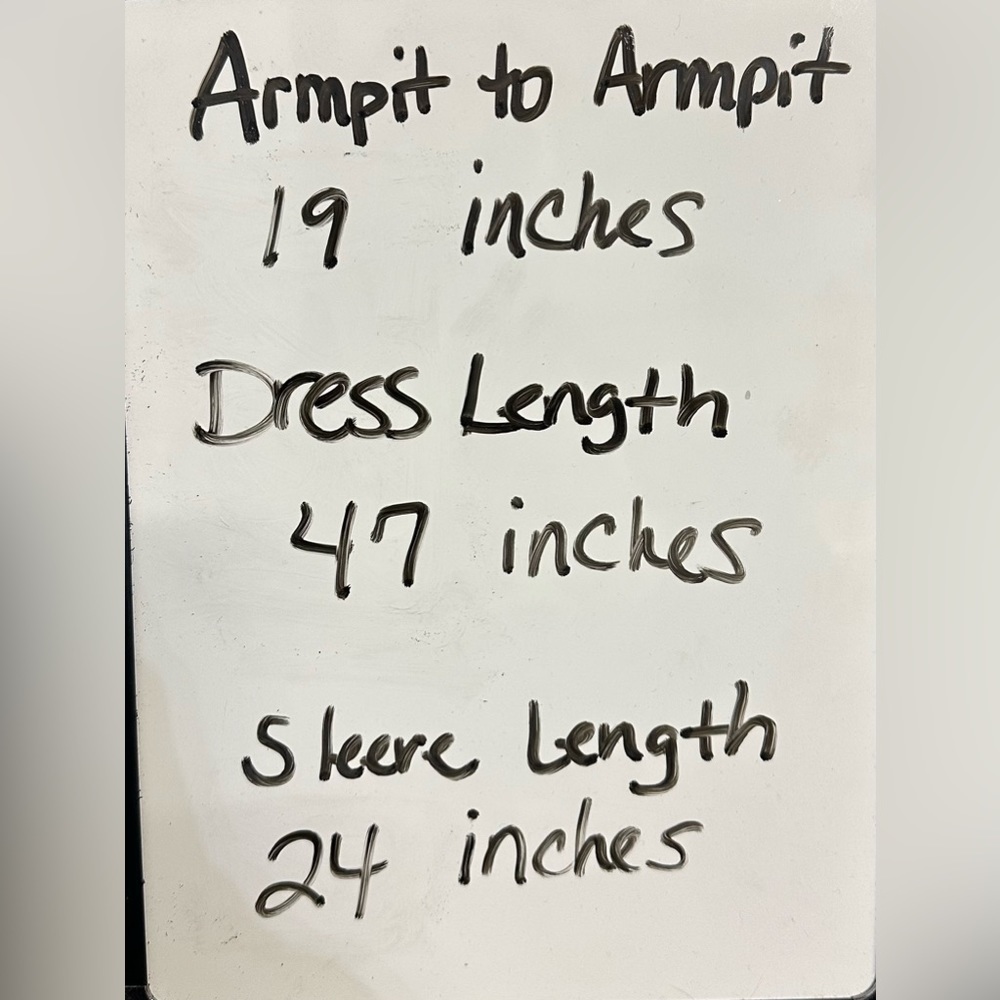 Armpit to Armpit
19 inches
Dress Length
47 inches
Sleeve Length
24 inches